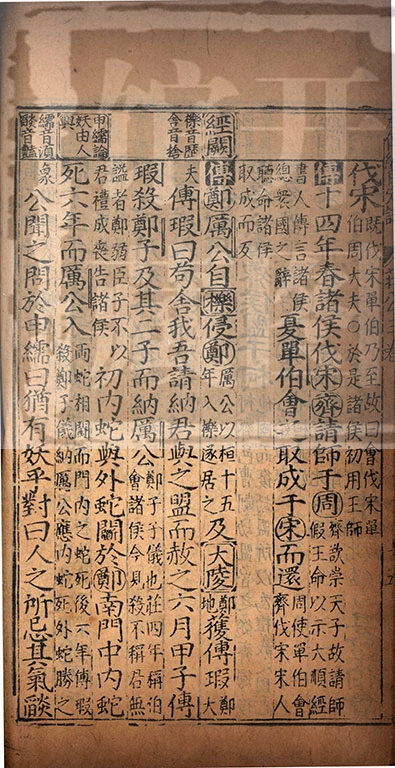 伐宋
既伐宋單伯乃至故曰會伐宋單
伯周大夫〇於是諸侯初用王師
傳十四年春諸侯伐宋齊請師于周
齊欲崇天子故請師
假王命以示大順經
書人傳言諸侯
緫衆國之辭
夏單伯會之取成于宋而還
周使單伯會
齊伐宋宋人
聽命諸侯
取成而反
經闕
傳鄭厲公自櫟侵鄭
厲公以桓十五
年入櫟遂居之
及大陵
鄭
地
獲傅瑕
鄭
大
櫟音歷
舍音捨
夫
傅瑕曰苟舍我吾請納君與之盟而赦之六月甲子傅
瑕殺鄭子及其二子而納厲公
鄭子子儀也莊四年稱伯
會諸侯今見殺不稱君無
申繻論
妖由人
興
諡者鄭弱臣子不以
君禮成喪告諸侯
初内蛇與外蛇鬭於鄭南門中内蛇
死六年而厲公入
兩蛇相鬭而門内之蛇死後六年傅瑕
殺鄭子儀納厲公應内蛇死外蛇勝之
繻音須
燄音豔
象
公聞之問於申繻曰猶有妖乎對曰人之所忌其氣燄